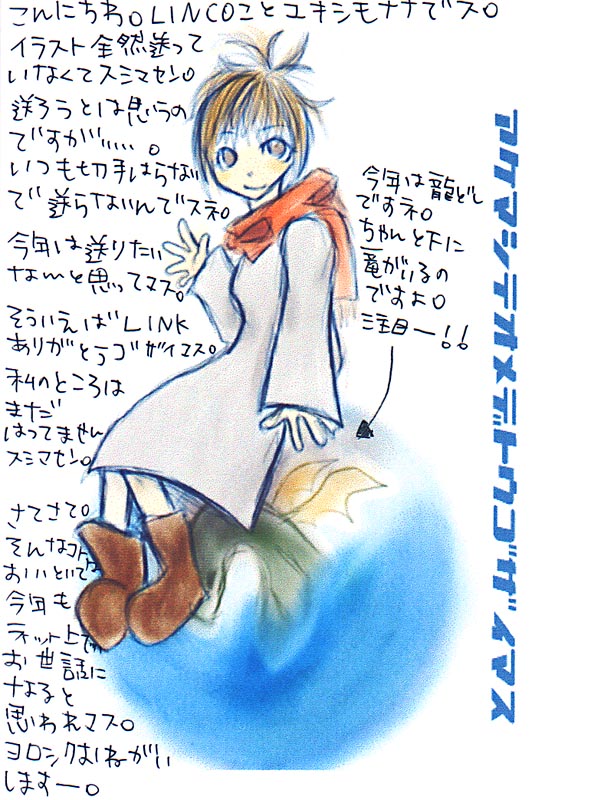 こんにちわ。LINCOことユキシモナナでス。
イラスト全然送って
いなくてスミマセン。
送ろうとは思うの
ですが・・・・・。
いつも切手はらない
で送らないんでスネ。
今年は送りたい
な～と思ってマス。
そういえばLINK
ありがとうゴザイマス。
私のところは
まだ
はってません
スミマセン。
さてさて。
そんなコトは
おいといて
今年も
ネット上で
お世話に
なると
思われマス。
ヨロシクおねがい
しますー。
今年は龍どし
ですネ。
ちゃんと下に
竜がいるの
ですよ。
注目ー!!
アケマシテオメデトウゴザイマス